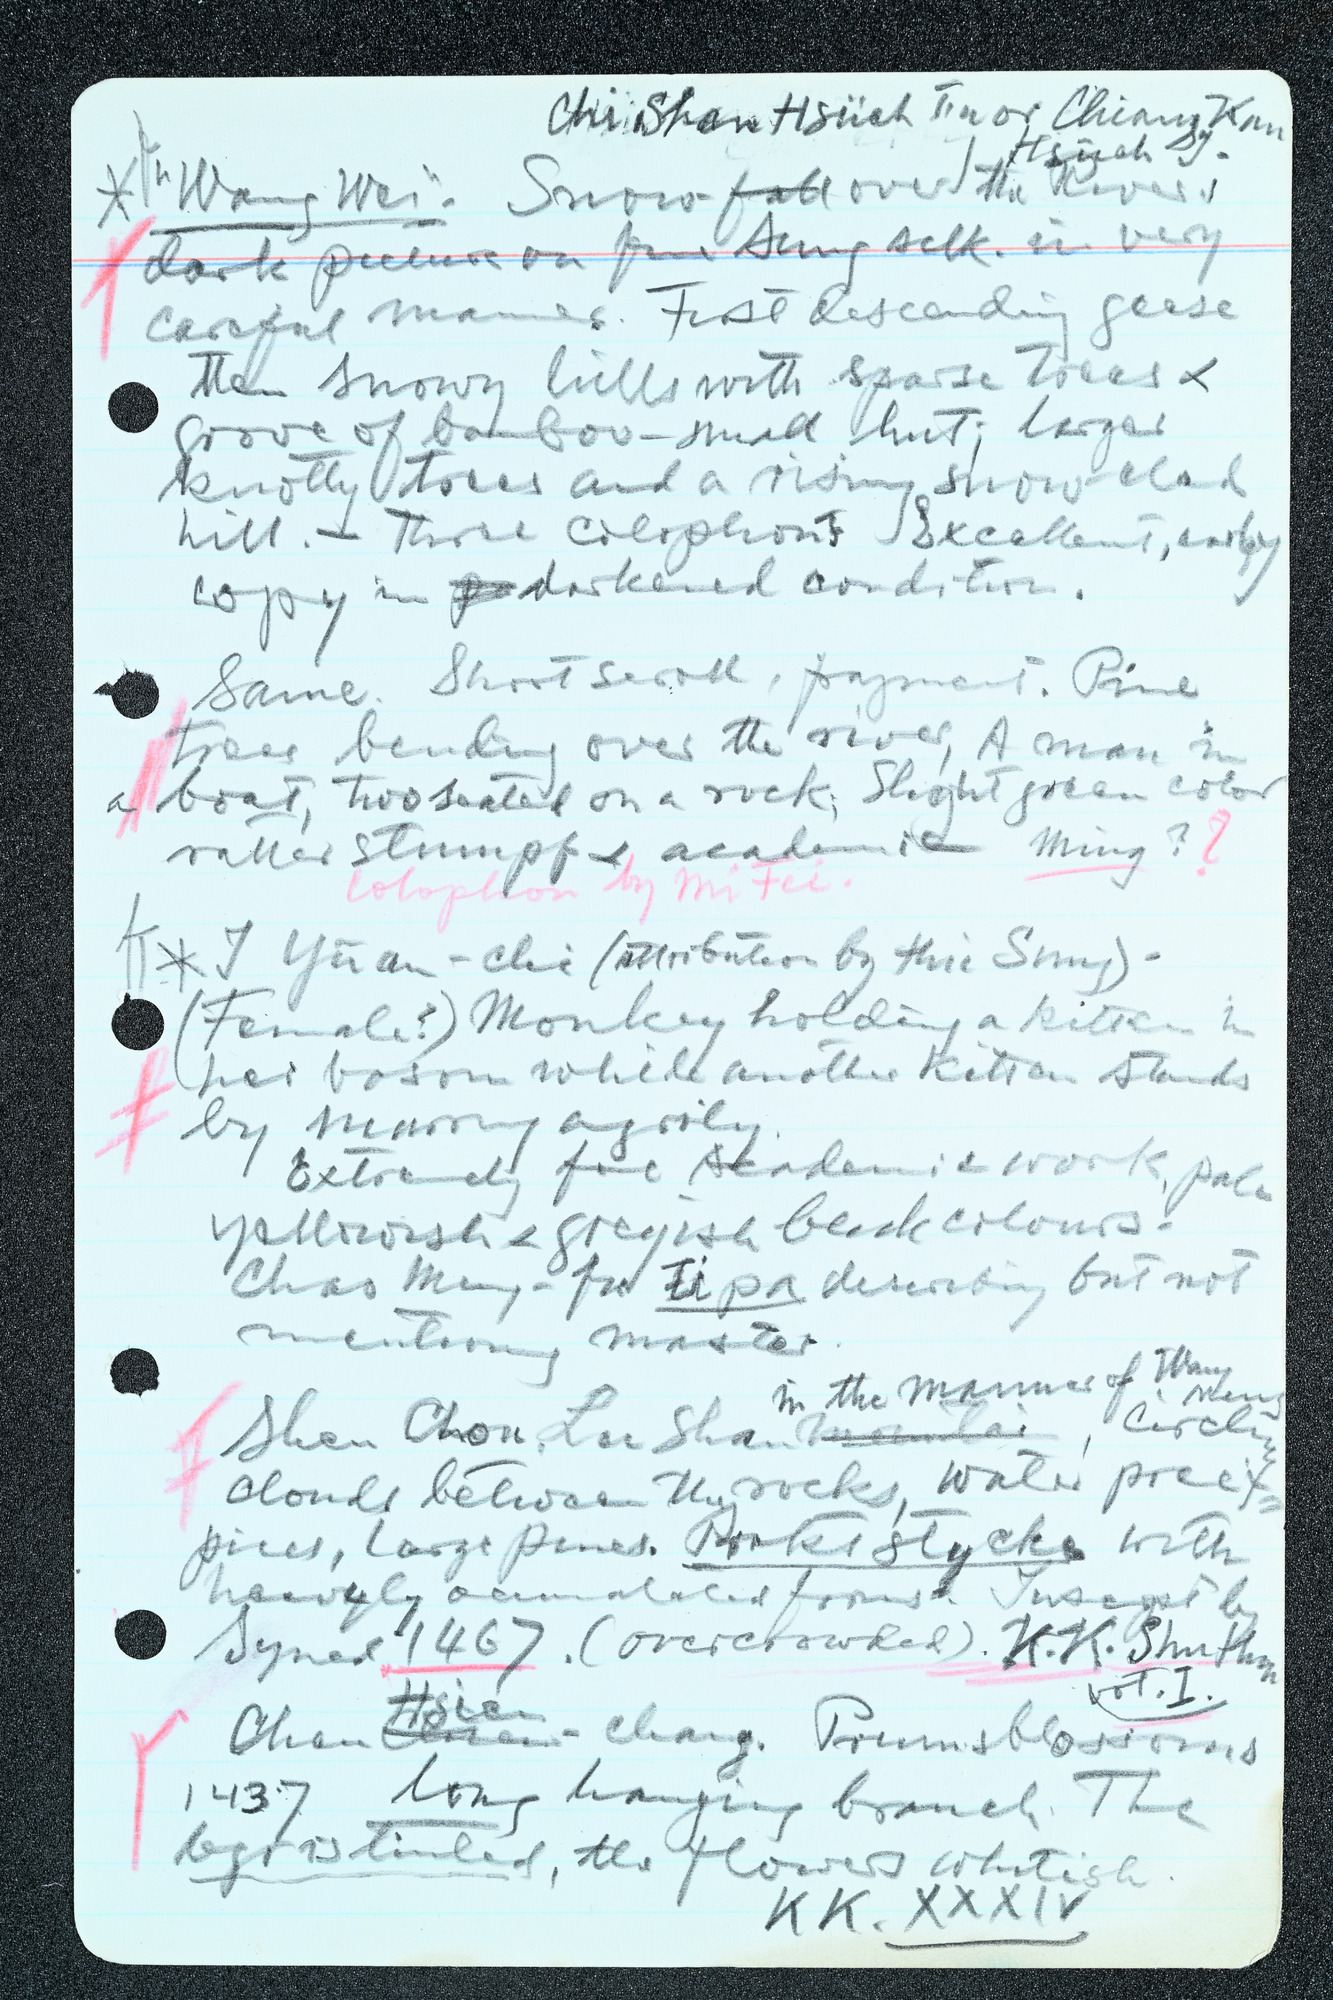 Chi Shan Hsüeh or Chiang Kan
Hsüeh
"Wang Wei". Snow fall over the River,
dark picture on fine Sung silk. in very
careful manner. First descending geese
then snowy hills with sparse trees &
grove of bamboo - small hut; larger
knotty trees and a rising snow-clad
hill. - Three colophons Excellent, early
copy in darkened condition.
Same. Short scroll, fragment. Pine
trees bending over the river, A man in
a boat, two seated on a rock; Slight green color
rather stumpf & academic Ming ? ?
Colophon by Mi Fei.
I Yüan-chi (attribution by Hui Sung)-
(Female?) Monkey holding a kitten in
her bosom while another kitten stands
by agrily.
Extremely fine academic work, pale
yellowish & greyish black colours.
Chao Meng-fu Ti pa describing but not
mentiong master.
in the manner of Wang Meng
Shen Chou. Lu Shan, Circling
clouds between the rocks, water
pices, large pines. Praktstycke with
heavyly forms. Inscript by
Syned 1467. (overcrowded). K.K. Shu Hua
vol. I.
Chen Hsien-chang. Prumsblossoms
1437 long hanging branch. The
is tinted, the flowers whitish.
KK. XXXIV